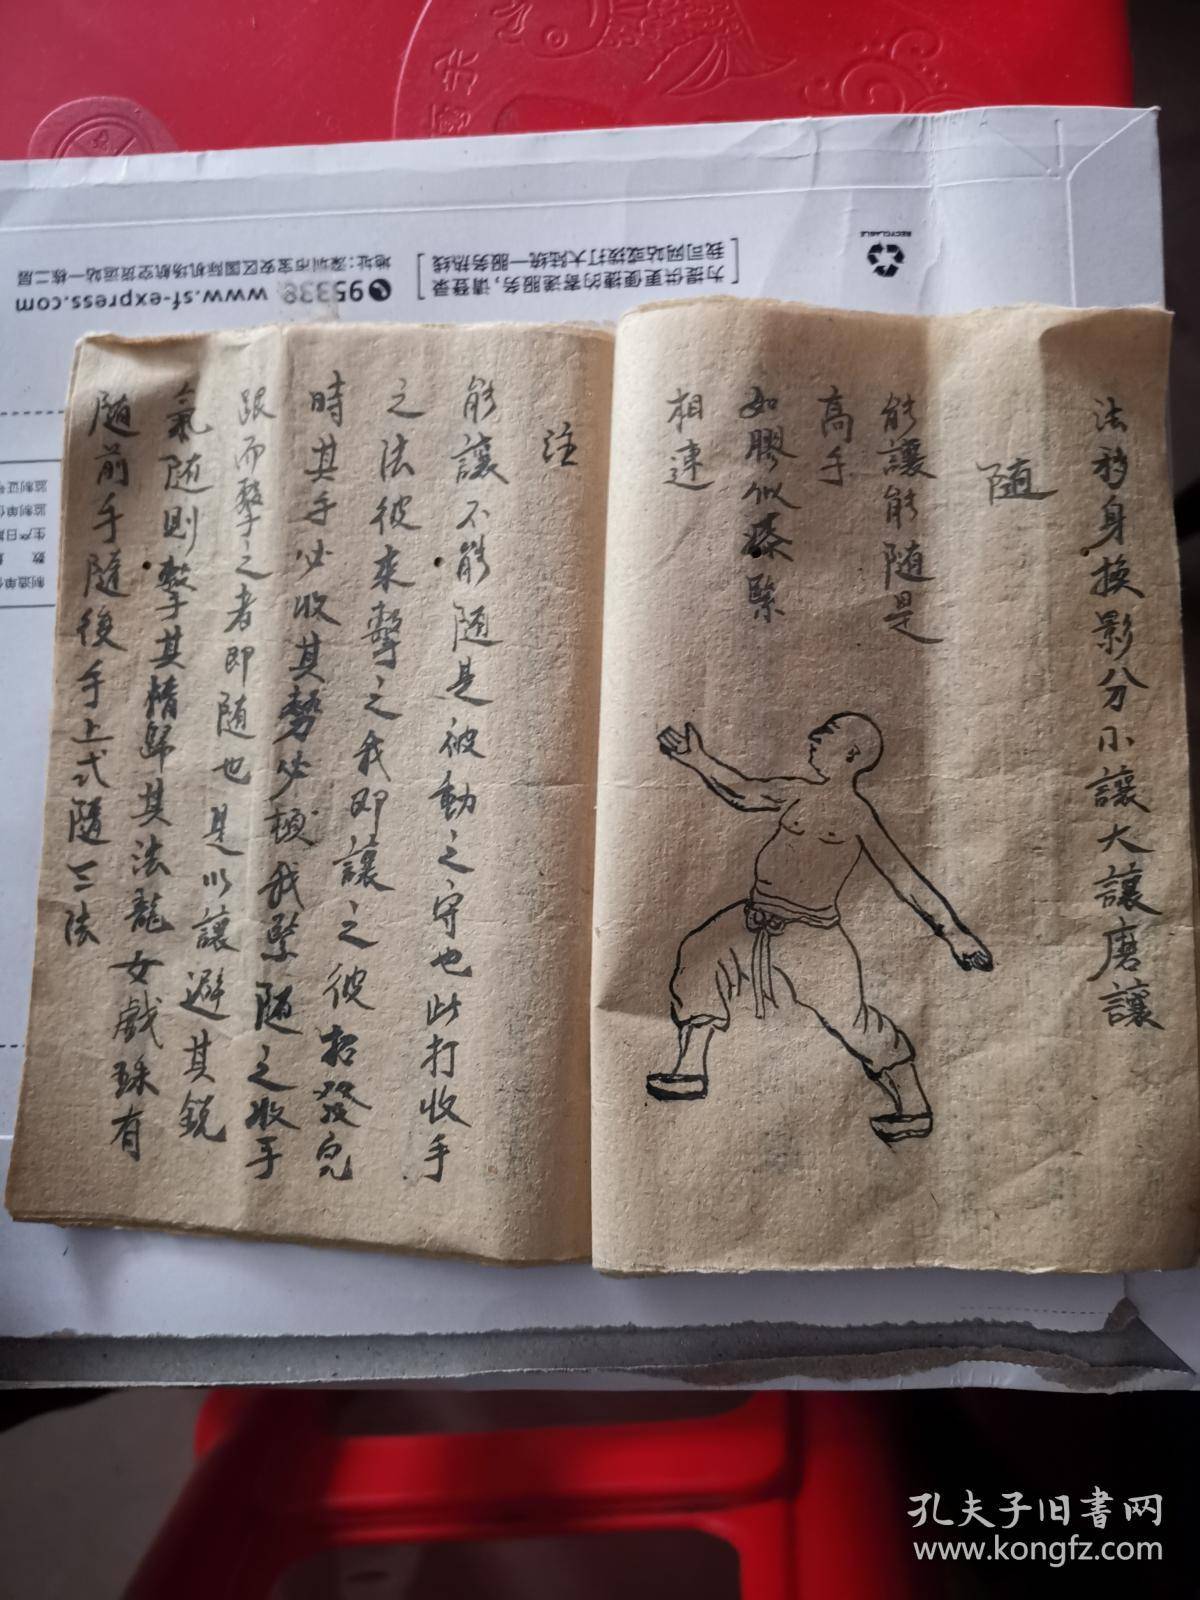 法移身換影分小讓大讓磨讓
随
能讓能随是
高手
如膠似漆緊
相連
注
能讓不能随是被動之守也此打收手
之法彼來擊之我即讓之彼招發完
時其手必收其勢必頓我緊随之收手
跟而擊之者即随也是以讓避其鋭
氣随則擊其惰歸其法龍女戲珠有
随前手隨後手上式隨三法
为提供更便捷的寄递服务，请登录
我司网站或拨打大陆统一服务热线
95338 www.sf-express.com
地址：深圳市宝安区国际机场航空货运站一栋二层
RECYCLABLE
制造单位
数
生产日期
监制单位
监制证号
孔夫子旧书网
www.kongfz.com